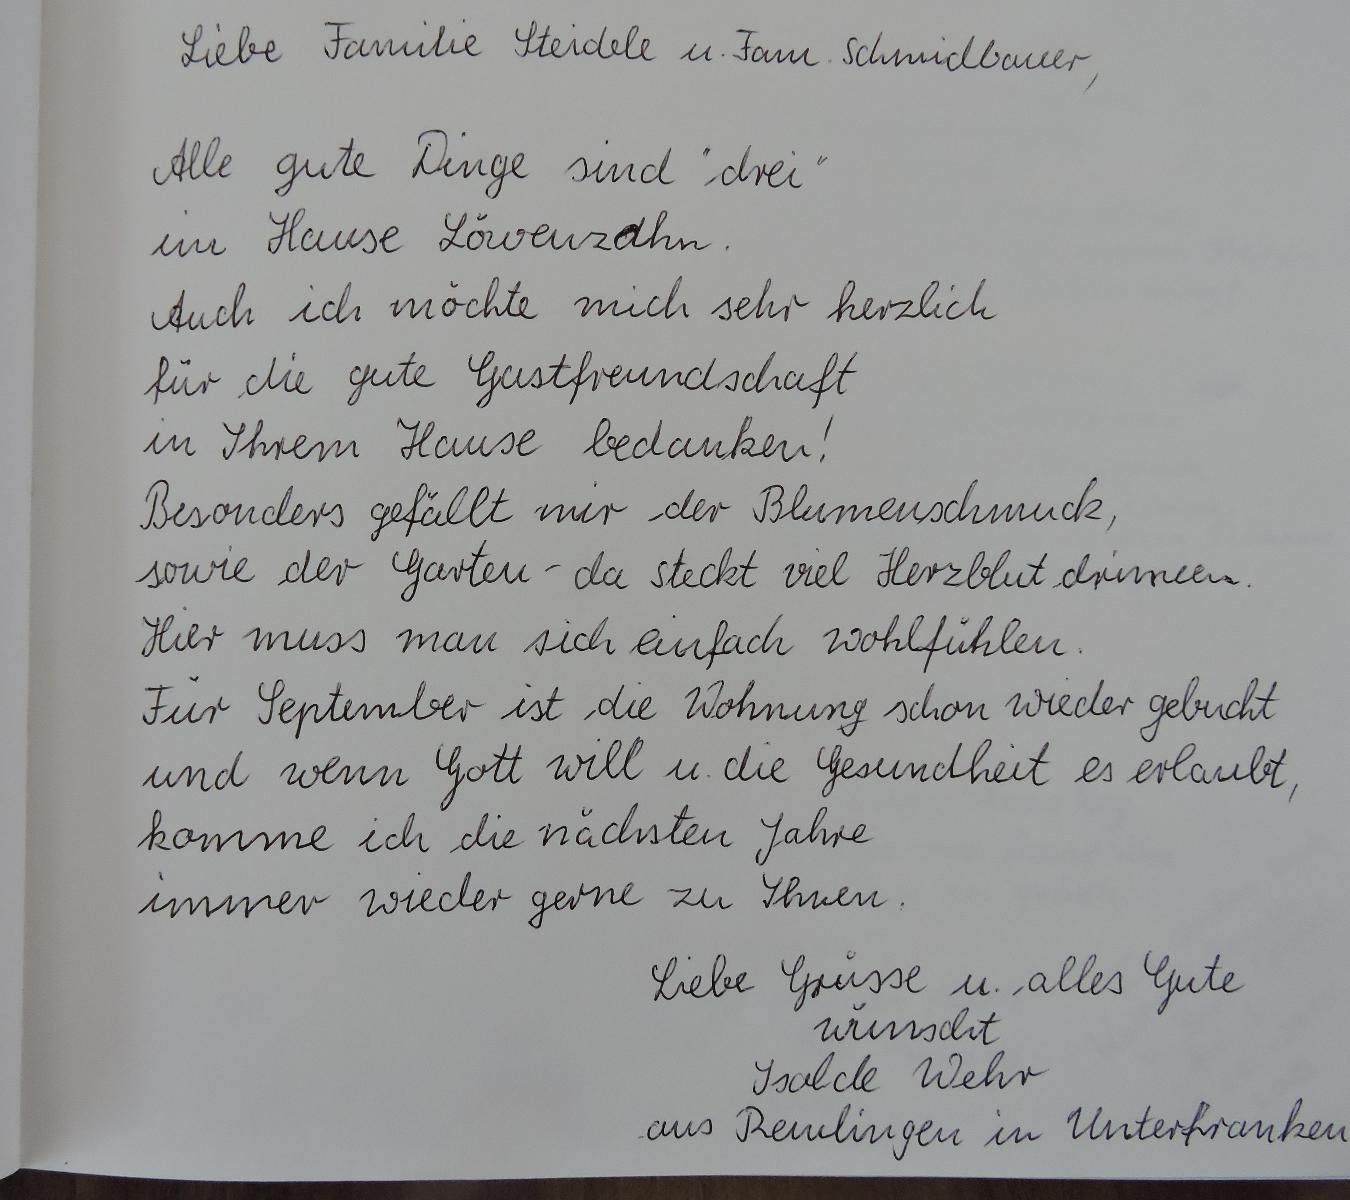 Liebe Familie Steidele u. Fam. Schmidbauer,
Alle gute Dinge sind "drei"
im Hause Löwenzahn.
Auch ich möchte mich sehr herzlich
für die gute Gastfreundschaft
in Ihrem Hause bedanken!
Besonders gefällt mir der Blumenschmuck,
sowie der Garten - da steckt viel Herzblut drinnen.
Hier muss man sich einfach wohlfühlen.
Für September ist die Wohnung schon wieder gebucht
und wenn Gott will u. die Gesundheit es erlaubt,
komme ich die nächsten Jahre
immer wieder gerne zu Ihnen.
Liebe Grüsse u. alles Gute
wünscht
Isolde Wehr
aus Remlingen in Unterfranken